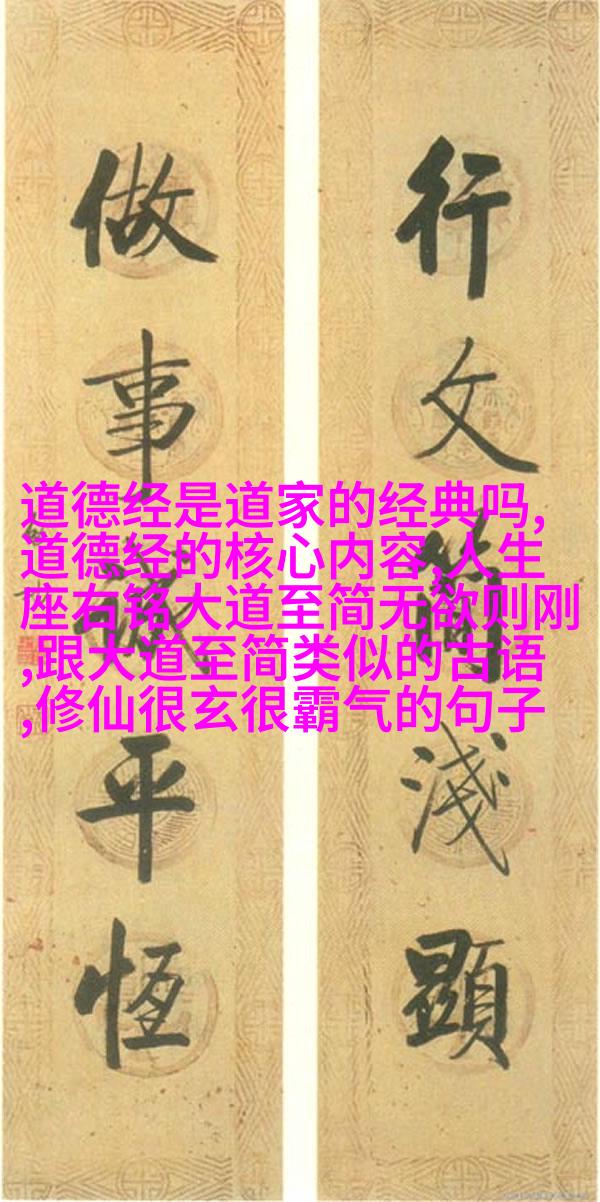 行文簡淺顯
做事誠平恆
道德经是道家的经典吗,
道德经的核心内容,人生
座右铭大道至简无欲则刚
,跟大道至简类似的古语
,修仙很玄很霸气的句子